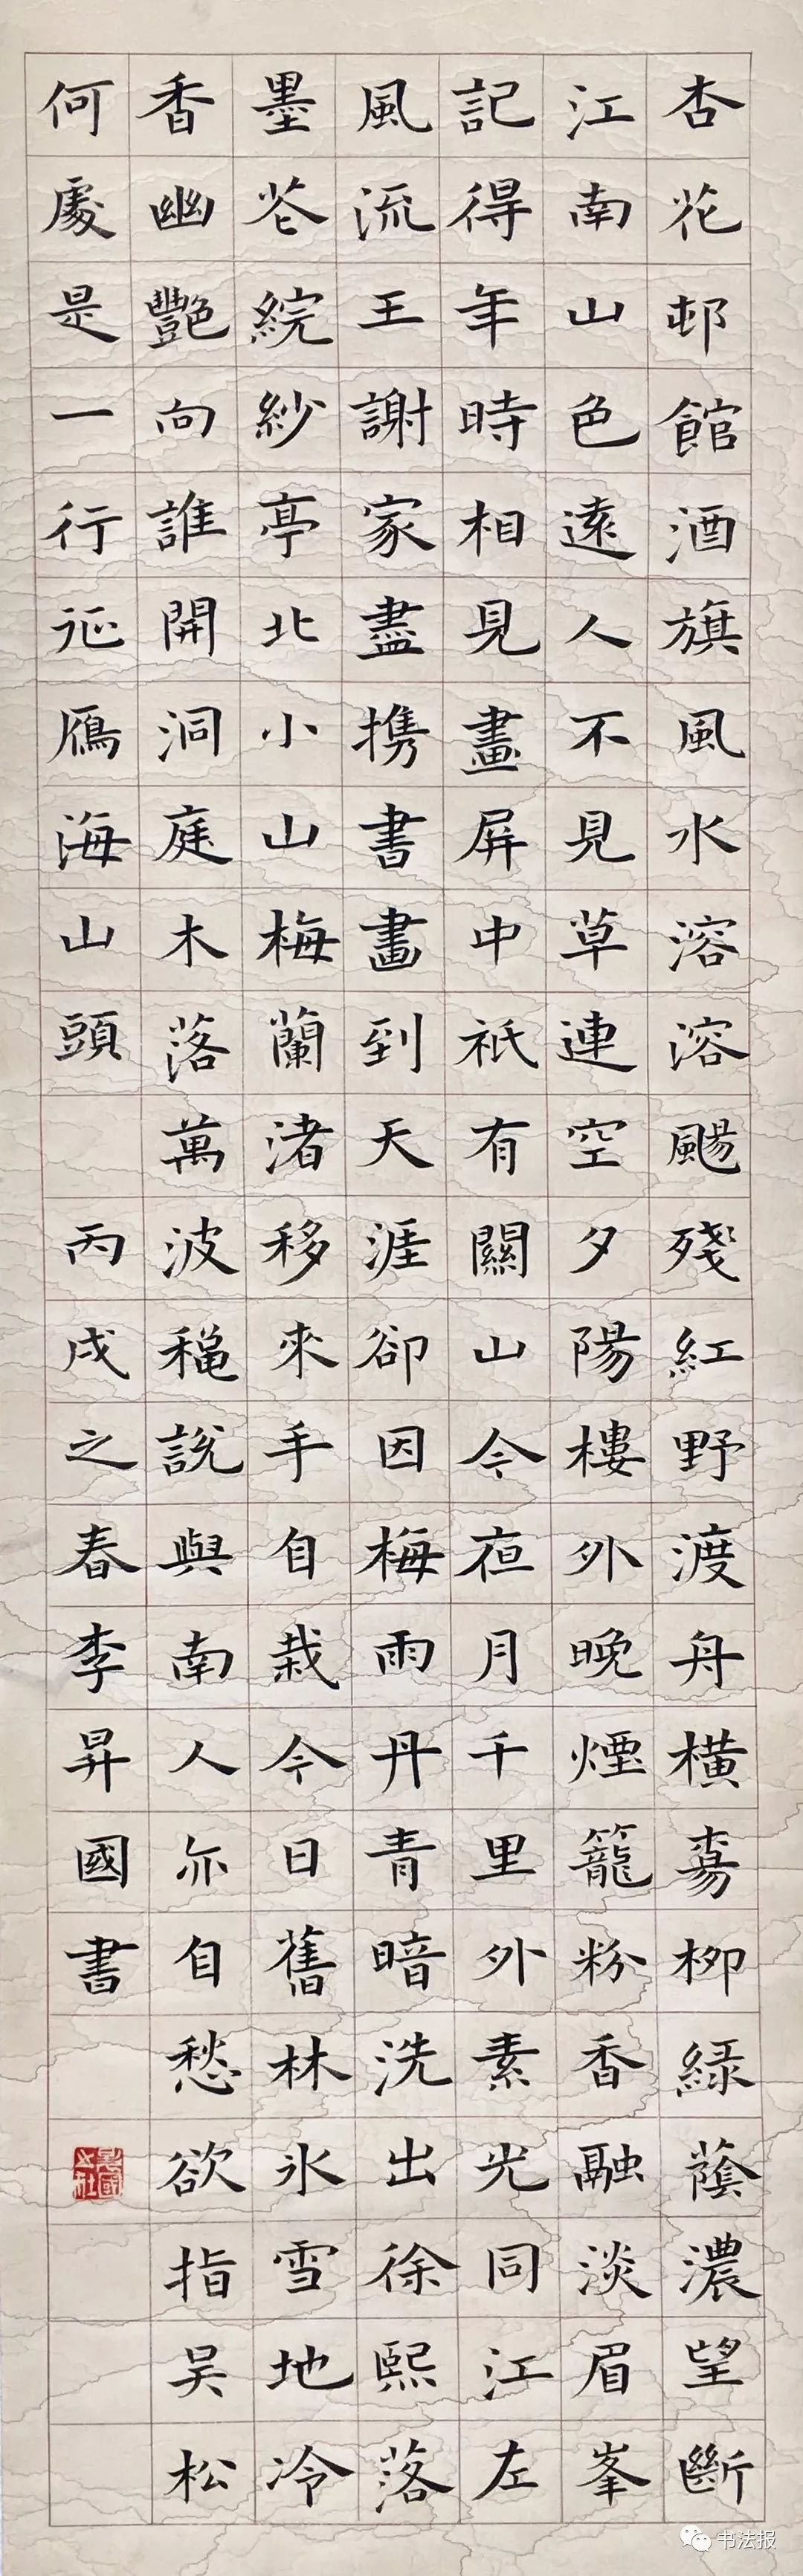 杏花邨館酒旗風水溶溶颺殘紅野渡舟橫楊柳綠蔭濃望斷
江南山色遠人不見草連空夕陽樓外晚煙籠粉香融淡眉峯
記得年時相見畫屏中祇有關山今夜月千里外素光同江左
風流王謝家盡携書畫到天涯卻因梅雨丹青暗洗出徐熙落
墨花綄紗亭北小山梅蘭渚移來手自栽今日舊林氷雪地冷
香幽豔向誰開洞庭木落萬波穐說與南人亦自愁欲指吴松
何處是一行征鴈海山頭
丙戌之春李昇國書
书法报